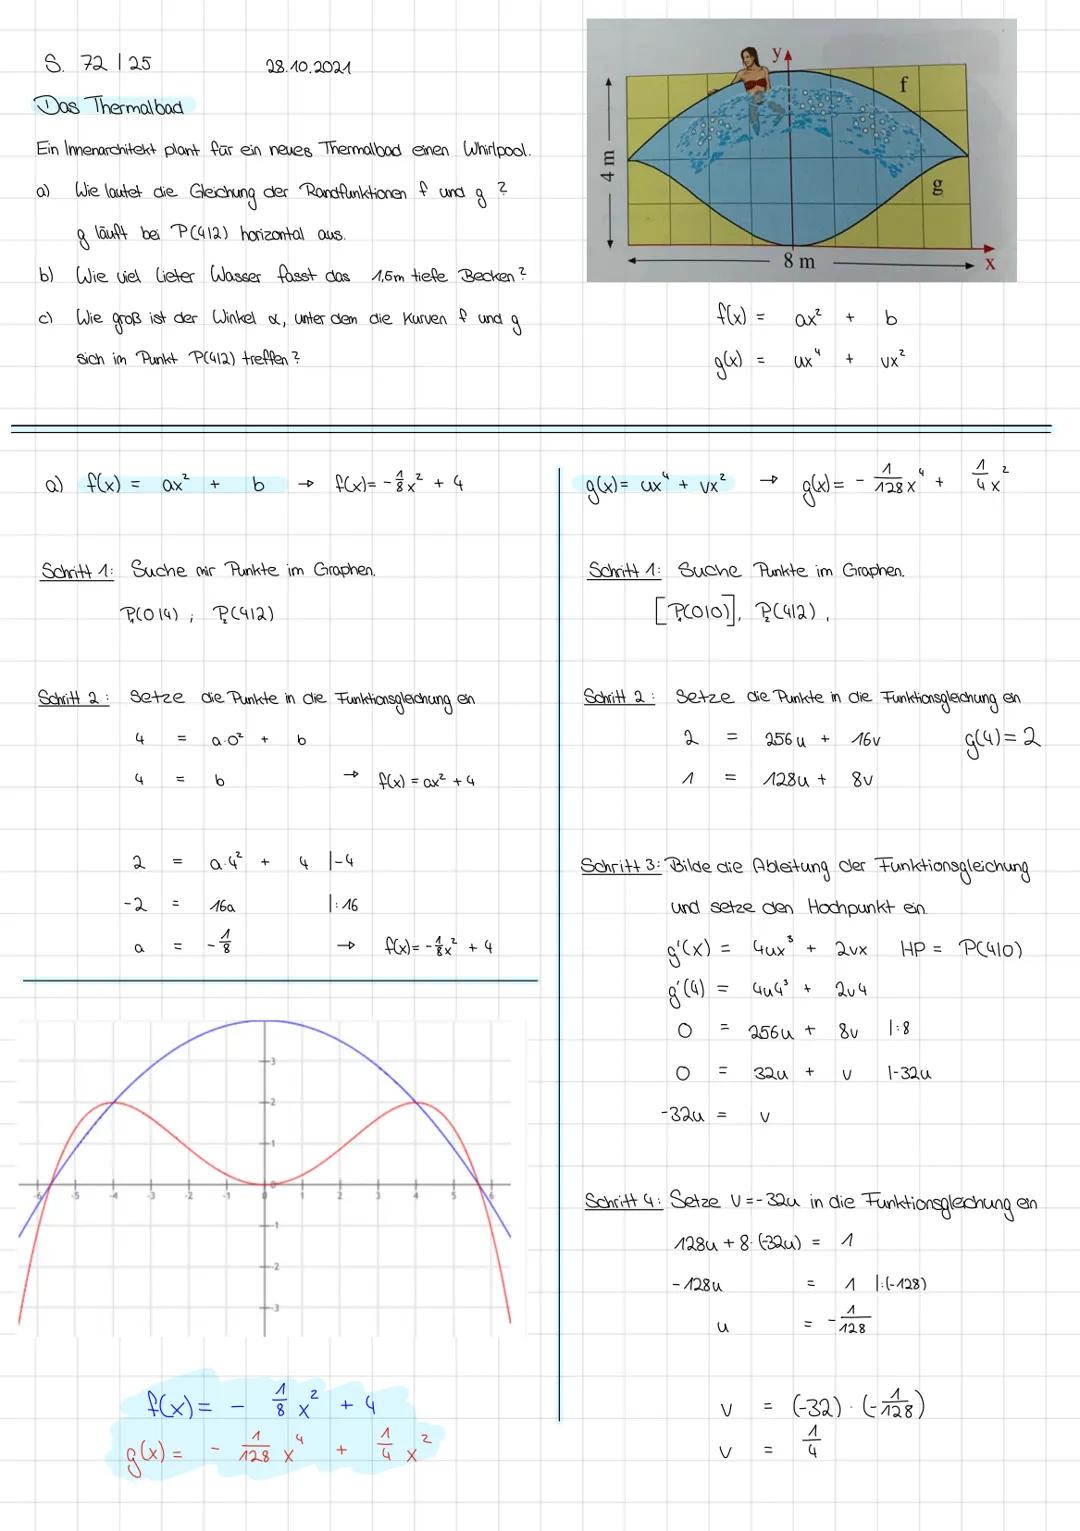 S. 72 | 25 28.10.2021
Das Thermalbad
Ein Innenarchitekt plant für ein neues Thermalbad einen Whirlpool.
a) Wie lautet die Gleichung der Randfunktionen f und g ?
g läuft bei P(4|2) horizontal aus.
b) Wie viel Lieter Wasser fasst das 1,5m tiefe Becken ?
c) Wie groß ist der Winkel α, unter dem die Kurven f und g
sich im Punkt P(4|2) treffen ?
y
f
g
4 m
8 m
x
f(x) = ax² + b
g(x) = ux⁴ + vx²
a) f(x) = ax² + b → f(x)= -1/8x² + 4
Schritt 1: Suche mir Punkte im Graphen.
P₁(0|4) ; P₂(4|2)
Schritt 2 : Setze die Punkte in die Funktionsgleichung ein
4 = a·0² + b
4 = b → f(x) = ax² + 4
2 = a·4² + 4 |-4
-2 = 16a |:16
a = -1/8 → f(x)= -1/8x² + 4
3
2
1
-6 -5 -4 -3 -2 -1 0 1 2 3 4 5 6
-1
-2
-3
f(x) = - 1/8 x² + 4
g(x) = - 1/128 x⁴ + 1/4 x²
g(x)= ux⁴ + vx² → g(x)= - 1/128 x⁴ + 1/4 x²
Schritt 1: Suche Punkte im Graphen.
[P₁(0|0)], P₂(4|2),
Schritt 2 : Setze die Punkte in die Funktionsgleichung ein
2 = 256u + 16v g(4)= 2
1 = 128u + 8v
Schritt 3: Bilde die Ableitung der Funktionsgleichung
und setze den Hochpunkt ein.
g'(x) = 4ux³ + 2vx HP = P(4|0)
g'(4) = 4u4³ + 2v4
0 = 256u + 8v |:8
0 = 32u + v |-32u
-32u = v
Schritt 4: Setze v=-32u in die Funktionsgleichung ein
128u + 8·(-32u) = 1
-128u = 1 |:(-128)
u = -1/128
v = (-32) · (-1/128)
v = 1/4